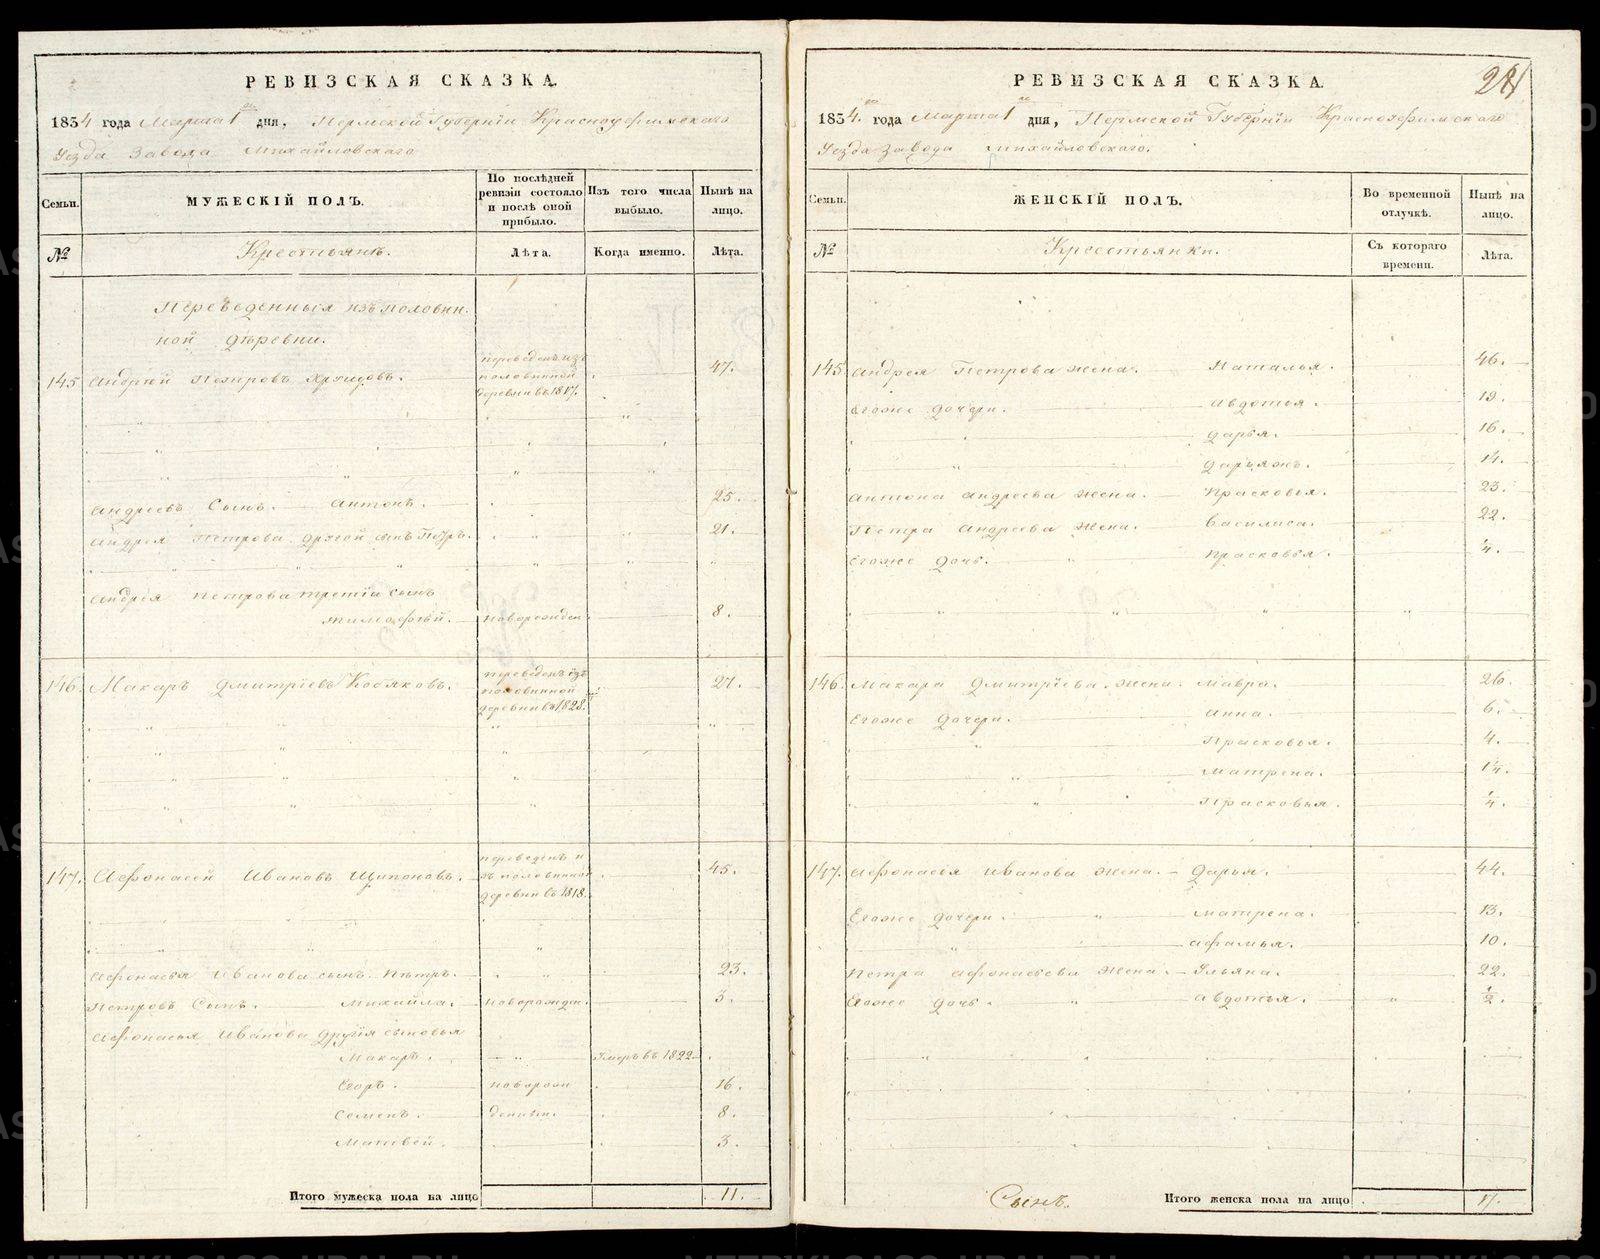 РЕВИЗСКАЯ СКАЗКА.
1834 года Марта 1го дня, Пермской Губерніи Красноуфимскаго
Уезда Завода Михайловскаго
Семьи.
МУЖЕСКІЙ ПОЛЪ.
По послѣдней ревизіи состояло и послѣ оной прибыло.
Изъ того числа выбыло.
Нынѣ на лицо.
№
Крестьянъ.
Лѣта.
Когда именно.
Лѣта.
Переведенныя изъ половин-
ной деревни.
145 Андрей Петровъ переведенъ изъ половинной деревни въ 1817. 47.
Андреевъ Сынъ. Антонъ. 25.
Андрея Петрова другой сынъ Петръ. 21.
Андрея Петрова третій сынъ
Тимофей. новорожден. 8.
146. Макаръ Дмитріевъ Кобяковъ. переведенъ изъ половинной деревни въ 1828. 27.
147. Афонасей Ивановъ Щипоновъ. переведенъ изъ половинной деревни въ 1818. 45.
Афонасья Иванова сынъ Петръ. 23.
Петровъ Сынъ. Михайла. новорожден. 3.
Афонасья Иванова другія сыновья
Макаръ. Умеръ въ 1822
Егоръ. новорож 16.
Семенъ. денныи. 8.
Матвей. 3.
Итого мужеска пола на лицо 11.
РЕВИЗСКАЯ СКАЗКА.
1834. года Марта 1го дня, Пермской Губерніи Красноуфимскаго
Уезда Завода Михайловскаго.
Семьи.
ЖЕНСКІЙ ПОЛЪ.
Во временной отлучкѣ.
Нынѣ на лицо.
№
Крестьянки.
Съ котораго времени.
Лѣта.
145. Андрея Петрова жена. Наталья. 46.
Егоже дочери. Авдотья. 19.
Дарья. 16.
14.
Антона Андреева жена. Прасковья. 23.
Петра Андреева жена. Василиса. 22.
Егоже дочь. Прасковья. 1/4.
146. Макара Дмитріева жена. Мавра. 26.
Егоже дочери. Анна. 6.
Прасковья. 4.
Матрена. 1 1/4.
Прасковья. 1/4.
147. Афонасья Иванова жена. Дарья. 44.
Егоже дочери. Матрена. 13.
Афимья. 10.
Петра Афонасьева жена. Ульяна. 22.
Егоже дочь. Авдотья. 1/2.
Сынъ.
Итого женска пола на лицо 17.